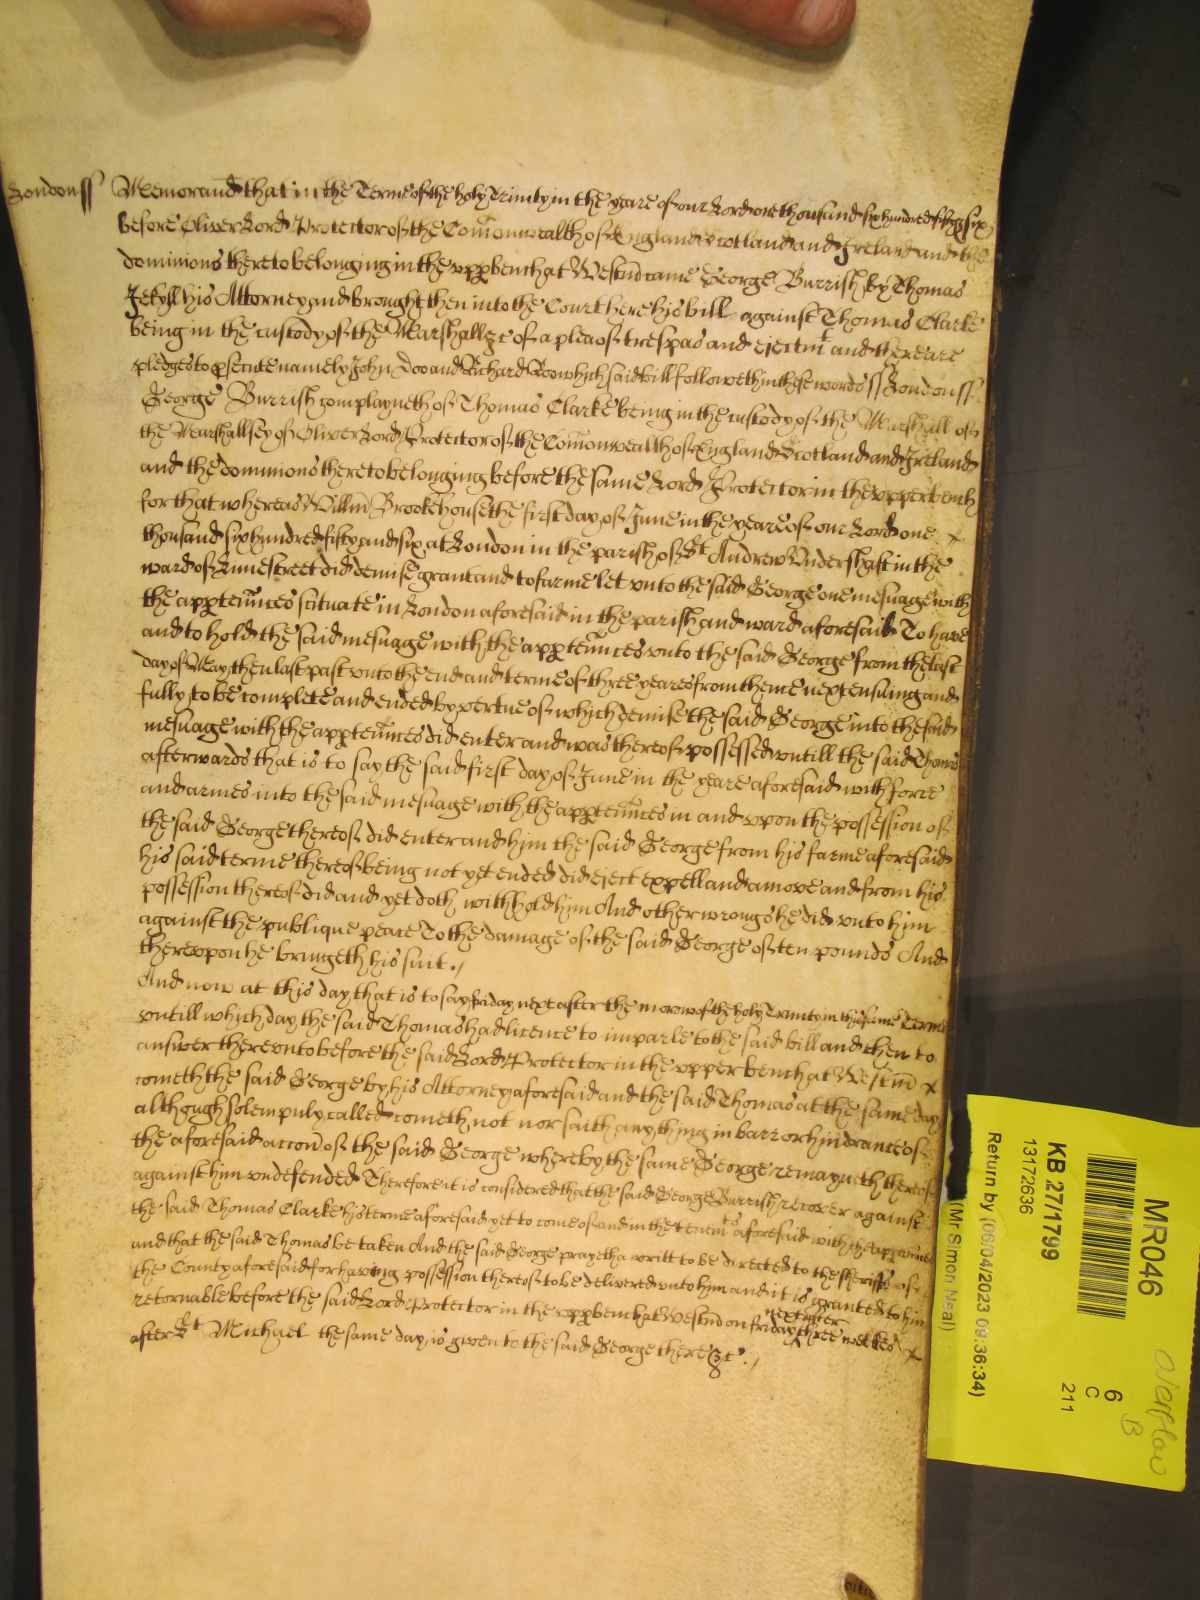 London ss Memorand that in the Terme of the holy Trinity in the yeare of our Lord one thousand six hundred fifty six
before Oliver Lord Protector of the Comonwealth of England Scotland and Ireland and the
dominions thereto belonging in the upp bench at Westm came George Burrish by Thomas
Jekyll his Attorney and brought then into the Court here his bill against Thomas Clarke
being in the custody of the Marshall &c of a plea of trespas and ejectmt and there are
pledges to psecute namely John Doo and Richard Roo which said bill followeth in these words ss London ss
George Burrish complayneth of Thomas Clarke being in the custody of the Marshall of
the Marshallsey of Oliver Lord Protector of the Comonwealth of England Scotland and Ireland
and the dominions thereto belonging before the same Lord Protector in the upper bench
for that whereas Willm Brookehouse the first day of June in the yeare of our Lord one
thousand six hundred fifty and six at London in the parish of St Andrew Undershaft in the
ward of Limestreet did demise grant and to farme let unto the said George one mesuage with
the apptennces scituate in London aforesaid in the parish and ward aforesaid To have
and to hold the said mesuage with the apptennces unto the said George from the last
day of May then last past unto the end and terme of three yeares from thence next ensuing and
fully to be complete and ended by vertue of which demise the said George into the said
mesuage with the apptennces did enter and was thereof possessed untill the said Thomas
afterwards that is to say the said first day of June in the yeare aforesaid with force
and armes into the said mesuage with the apptennces in and upon the possession of
the said George thereof did enter and him the said George from his farme aforesaid
his said terme thereof being not yet ended did eject expell and amove and from his
possession thereof did and yet doth withhold him And other wrongs he did unto him
against the publique peace To the damage of the said George of ten pounds And
thereupon he bringeth his suit
And now at this day that is to say friday next after the morow of the holy Trinity in this same Terme
untill which day the said Thomas had licence to imparle to the said bill and then to
answer thereunto before the said Lord Protector in the upper bench at Westm
cometh the said George by his Attorney aforesaid and the said Thomas at the same day
although solempnly called cometh not nor saith any thing in barr or hindrance of
the aforesaid accon of the said George whereby the same George remayneth thereof
against him undefended Therefore it is considered that the said George Burrish recover against
the said Thomas Clarke his terme aforesaid yet to come of and in the tenemts aforesaid with the apptennces
and that the said Thomas be taken And the said George prayeth a writt to be directed to the Sheriffs of
the County aforesaid for having possession thereof to be delivered unto him and it is granted to him
retornable before the said Lord Protector in the upp bench at Westm on friday next after three weekes
after St Michael the same day is given to the said George there &c
MR046
KB 27/1799
13172636
6
C
211
Return by (06/04/2023 09:36:34)
(Mr Simon Neal)
Overflow
B